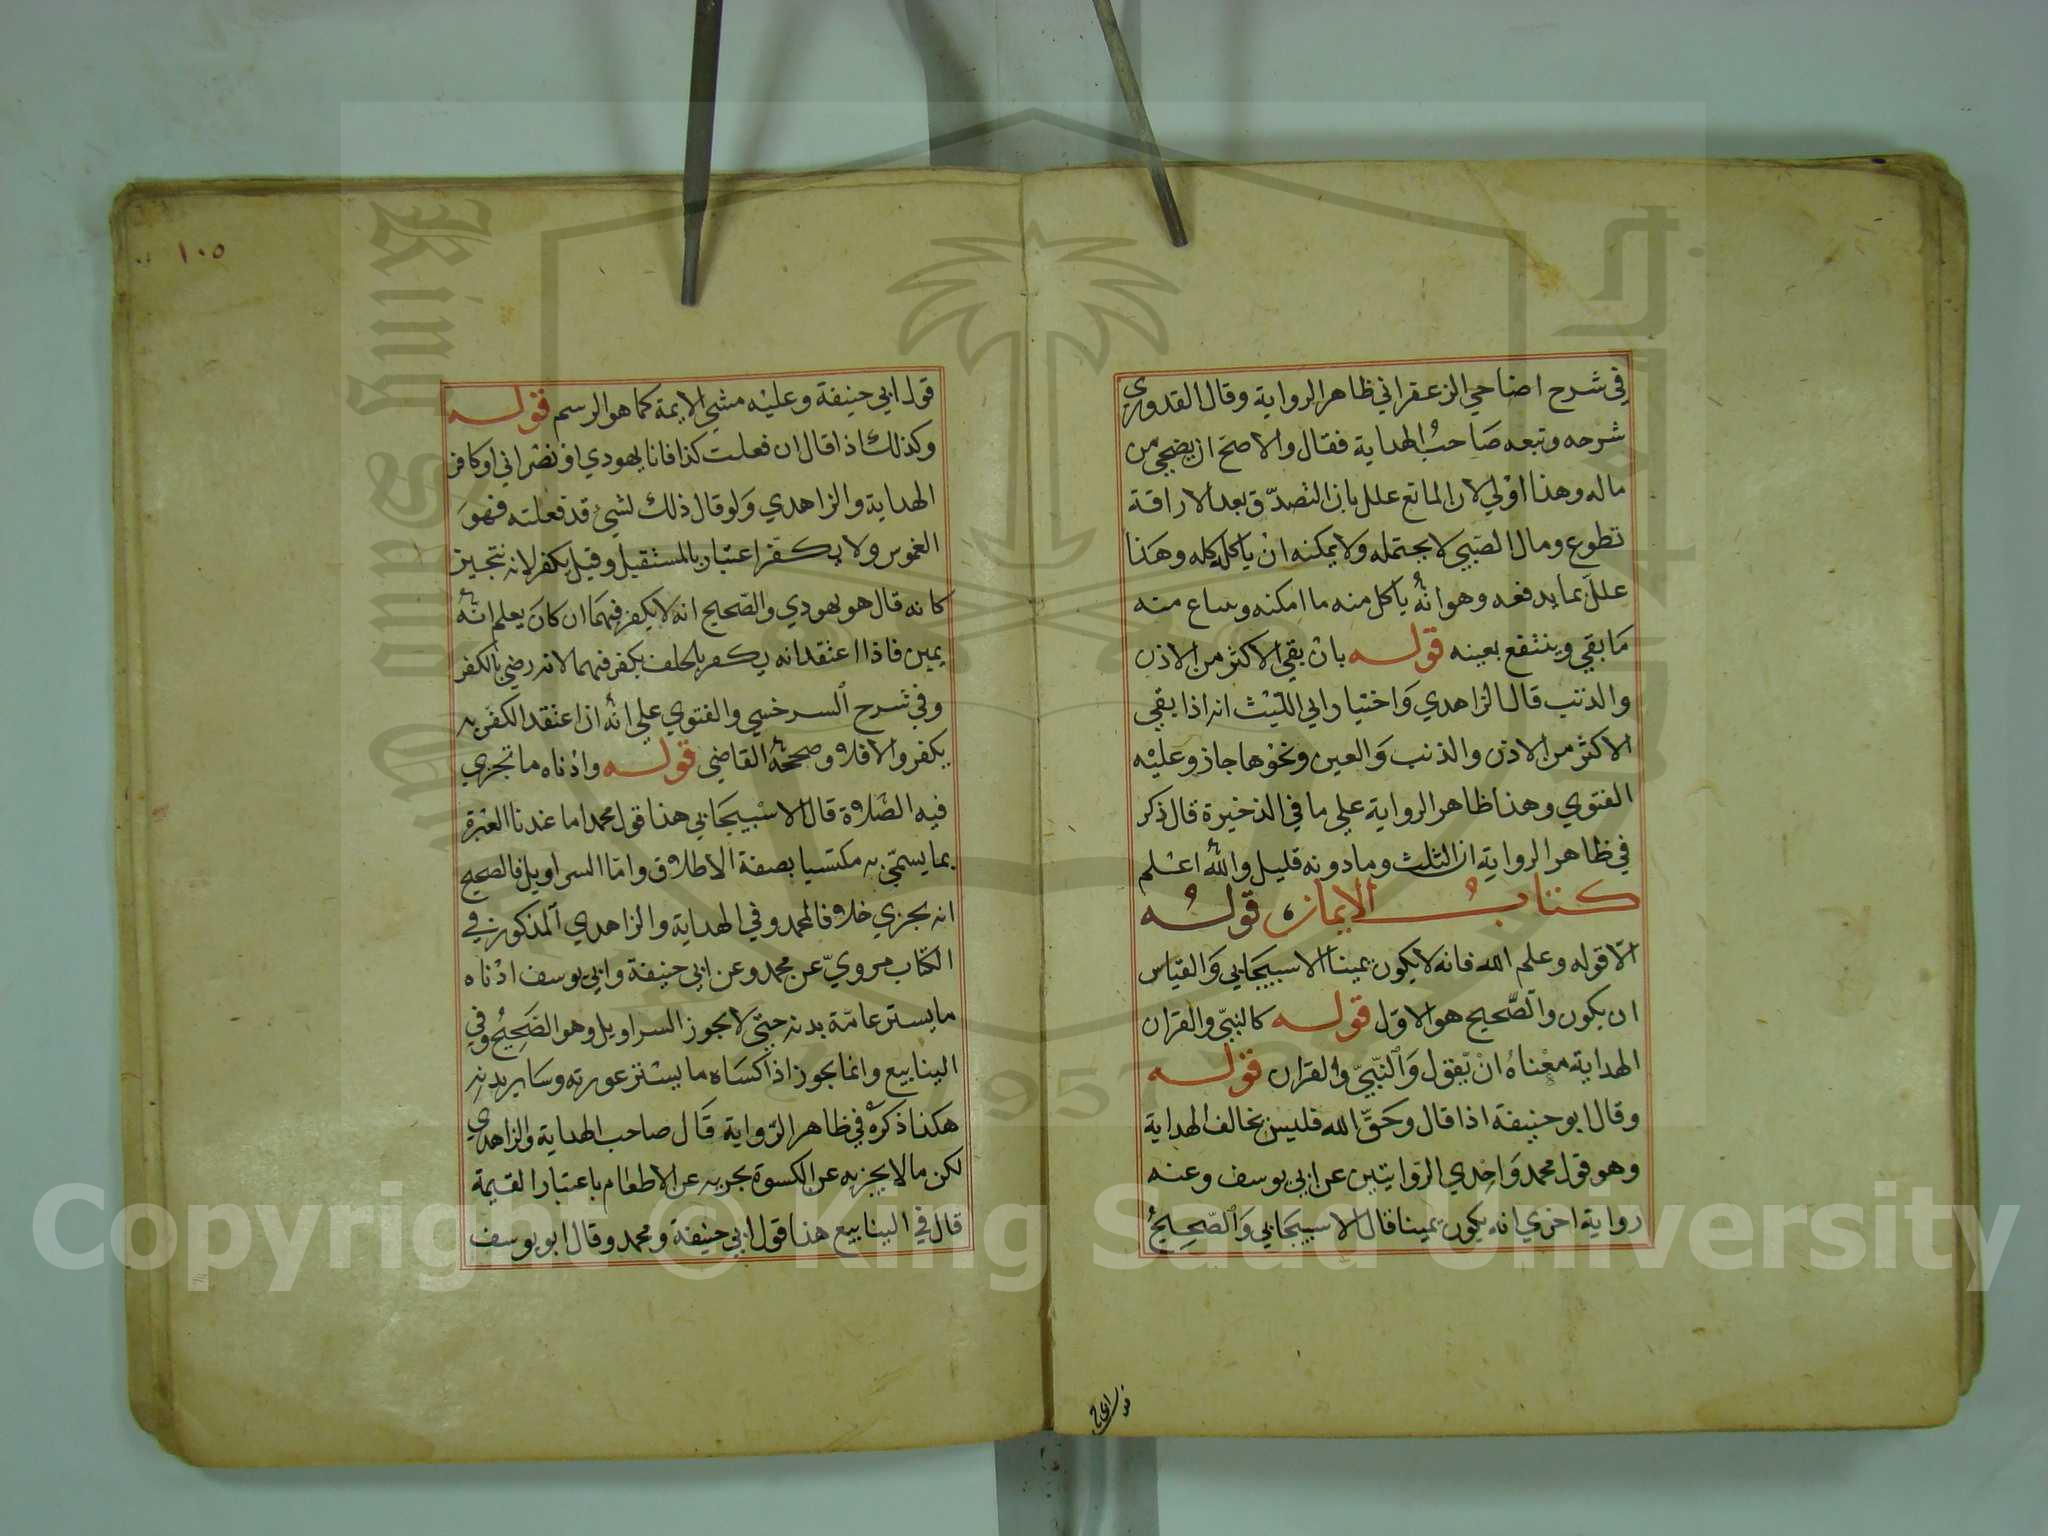 في شرح اضاحي الزعفراني ظاهر الرواية وقال القدوري
شرحه وتبعه صاحب الهداية فقال والاصح ان يضحي من
ماله وهذا اولي لان المانع علل بان التصدق بعد الاراقة
تطوع ومال الصبي لا يحتمله ولا يمكنه ان ياكل كله وهذا
علل بما يدفعه وهو انه ياكل منه ما امكنه ويباع منه
ما بقي وينتفع بعينه قوله بان بقي الاكثر من الاذن
والذنب قال الزاهدي واختيار ابي الليث انه اذا بقي
الاكثر من الاذن والذنب والعين ونحوها جاز وعليه
الفتوي وهذا ظاهر الرواية علي ما في الذخيرة قال ذكر
في ظاهر الرواية ان الثلث وما دونه قليل والله اعلم
كتاب الايمان قوله
الا قوله وعلم الله فانه لا يكون يمينا الاسبيجابي والقياس
ان يكون والصحيح هو الاول قوله كالنبي والقران
الهداية معناه ان يقول والنبي والقران قوله
وقال ابو حنيفة اذا قال وحق الله فليس بحالف الهداية
وهو قول محمد واحدي الروايتين عن ابي يوسف وعنه
رواية اخري انه يكون يمينا قال الاسبيجابي والصحيح
١٠٥
قول ابي حنيفة وعليه مشي الايمة كما هو الرسم قوله
وكذلك اذا قال ان فعلت كذا فانا يهودي او نصراني او كافر
الهداية والزاهدي ولو قال ذلك لشي قد فعلته فهو
الغموس ولا يكفر اعتبارا بالمستقبل وقيل يكفر لانه تنجيز
كانه قال هو يهودي والصحيح انه لا يكفر فيهما ان كان يعلم انه
يمين فاذا اعتقد انه يكفر بالحلف يكفر فيهما لانه رضي بالكفر
وفي شرح السرخسي والفتوي علي انه اذا اعتقد الكفر به
يكفر والا فلا وصححه القاضي قوله وادناه ما تجزي
فيه الصلاة قال الاسبيجابي هذا قول محمد اما عندنا العبرة
بما يسمي به مكتسيا بصفة الاطلاق واما السراويل فالصحيح
انه يجزي خلافا لمحمد وفي الهداية والزاهدي المذكور في
الكتاب مروي عن محمد وعن ابي حنيفة وابي يوسف ادناه
ما يستر عامة بدنه حتي لا يجوز السراويل وهو الصحيح وفي
الينابيع وانما يجوز اذا كساه ما يستر عورته وساير بدنه
هكذا ذكره في ظاهر الرواية قال صاحب الهداية والزاهدي
لكن ما لا يجزيه عن الكسوة يجزيه عن الاطعام باعتبار القيمة
قال في الينابيع هذا قول ابي حنيفة ومحمد وقال ابو يوسف
Copyright © King Saud University
King Saud University
1957